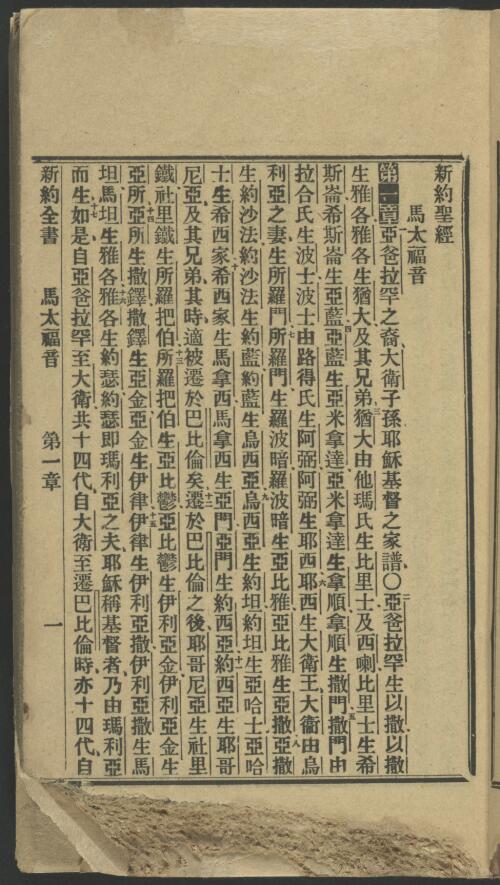 新約聖經
馬太福音
第一章 一亞爸拉罕之裔大衛子孫耶穌基督之家譜〇二亞爸拉罕生以撒以撒
生雅各雅各生猶大及其兄弟三猶大由他瑪氏生比里士及西喇比里士生希
斯崙希斯崙生亞藍四亞藍生亞米拿達亞米拿達生拿順拿順生撒門五撒門由
拉合氏生波士波士由路得氏生阿弼阿弼生耶西六耶西生大衛王大衛由烏
利亞之妻生所羅門七所羅門生羅波暗羅波暗生亞比雅亞比雅生亞撒八亞撒
生約沙法約沙法生約藍約藍生烏西亞九烏西亞生約坦約坦生亞哈士亞哈
士生希西家十希西家生馬拿西馬拿西生亞門亞門生約西亞十一約西亞生耶哥
尼亞及其兄弟其時適被遷於巴比倫矣十二遷於巴比倫之後耶哥尼亞生社里
鐵社里鐵生所羅把伯十三所羅把伯生亞比鬱亞比鬱生伊利亞金伊利亞金生
亞所十四亞所生撒鐸撒鐸生亞金亞金生伊律十五伊律生伊利亞撒伊利亞撒生馬
坦馬坦生雅各十六雅各生約瑟約瑟即瑪利亞之夫耶穌稱基督者乃由瑪利亞
而生十七如是自亞爸拉罕至大衛共十四代自大衛至遷巴比倫時亦十四代自
新約全書 馬太福音 第一章 一